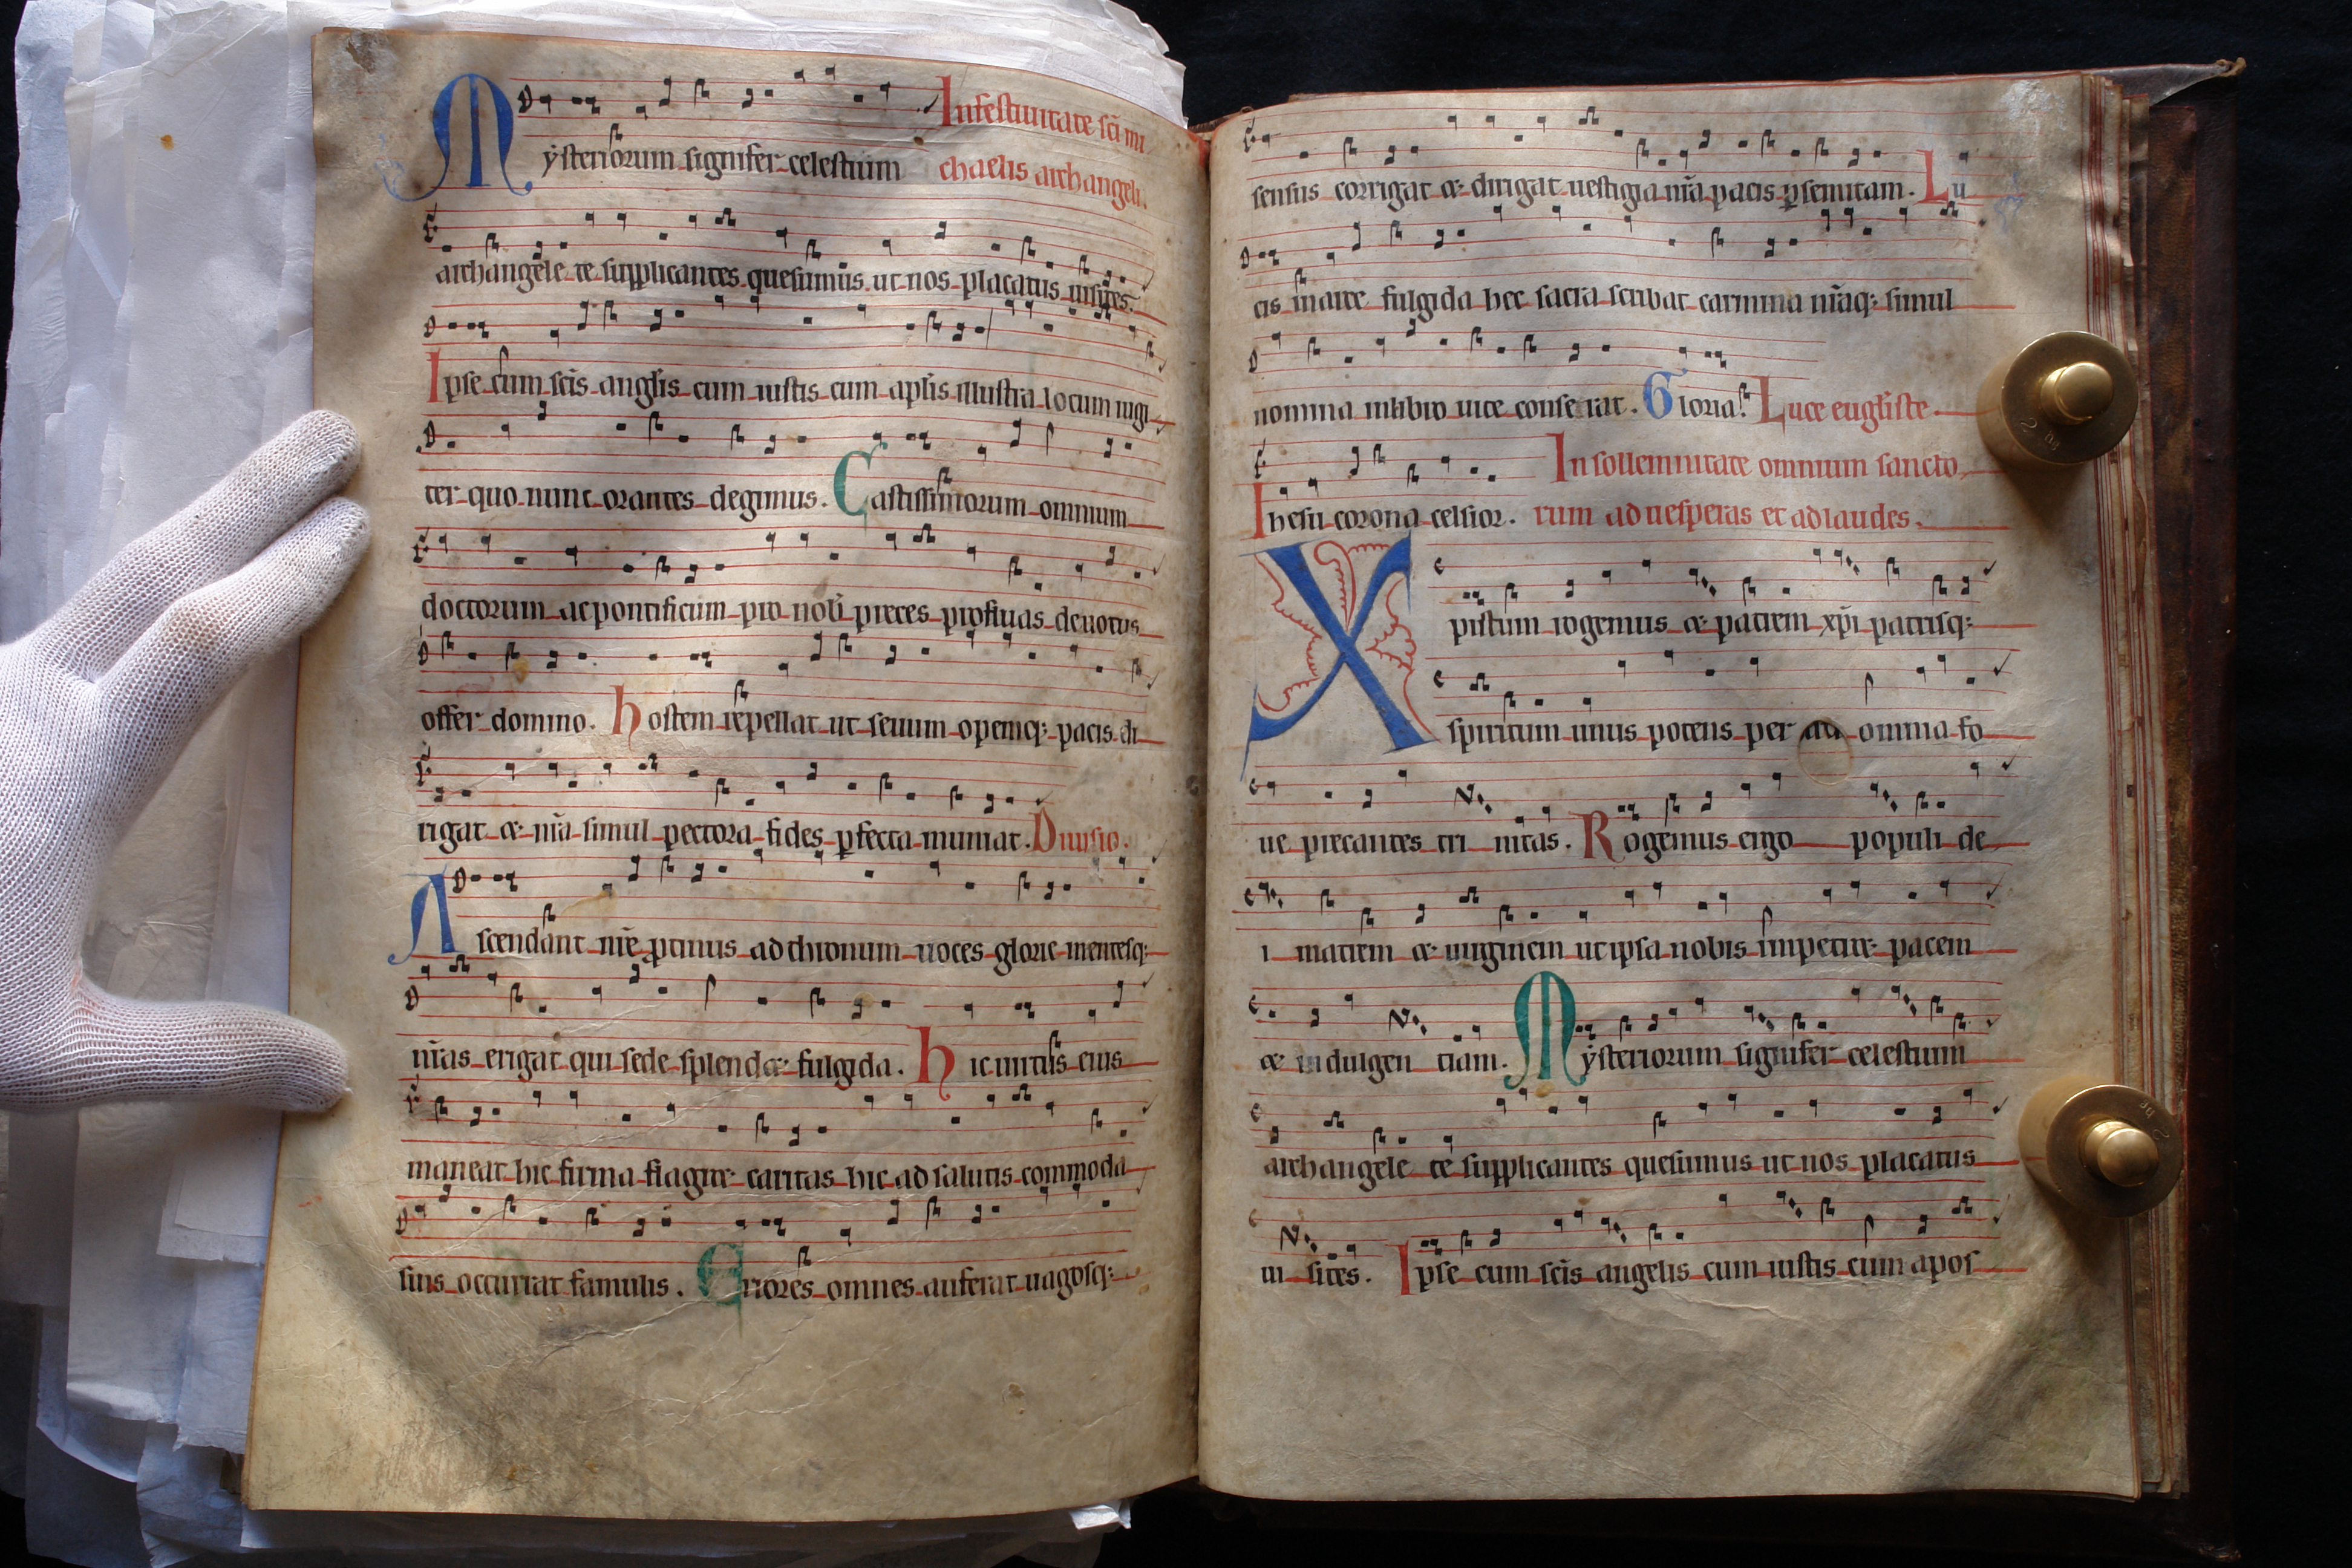 Mẏsteriorum signifer celestium In festiuitate sc̄i mi
chaelis archangeli.
archangele te supplicantes quesumus ut nos placatus uisites.
Ipse cum sc̄is angl̄is cum iustis cum apl̄is illustra locum iugi
ter quo nunc orantes degimus. Castissimorum omnium
doctorum ac pontificum pro nob̄ preces profluas deuotus
offer domino. hostem repellat ut seuum opemq; pacis di
rigat & nr̄a simul pectora fides ꝑfecta muniat. Diuisio.
Ascendant nr̄e ꝓtinus ad thronum uoces glorie mentesq;
nr̄as erigat qui sede splend& fulgida. hic uirtus eius
maneat hic firma flagr& caritas hic ad salutis commoda
suis occurrat famulis. Errores omnes auferat uagosq;
sensus corrigat & dirigat uestigia nr̄a pacis ꝑ semitam. Lu
cis in arce fulgida hec sacra scribat carmina nr̄aq; simul
nomina in libro uite conferat. Gloria. Luce eugl̄iste
Ihesu corona celsior. In sollemnitate omnium sancto
rum ad uesperas et ad laudes.
Xpistum rogemus & patrem xp̄i patrisq;
spiritum unus potens per omnia fo
ue precantes tri nitas. Rogemus ergo populi de
i matrem & uirginem ut ipsa nobis impetr& pacem
& indulgen tiam. Mẏsteriorum signifer celestium
archangele te supplicantes quesumus ut nos placatus
ui sites. Ipse cum sc̄is angelis cum iustis cum apos